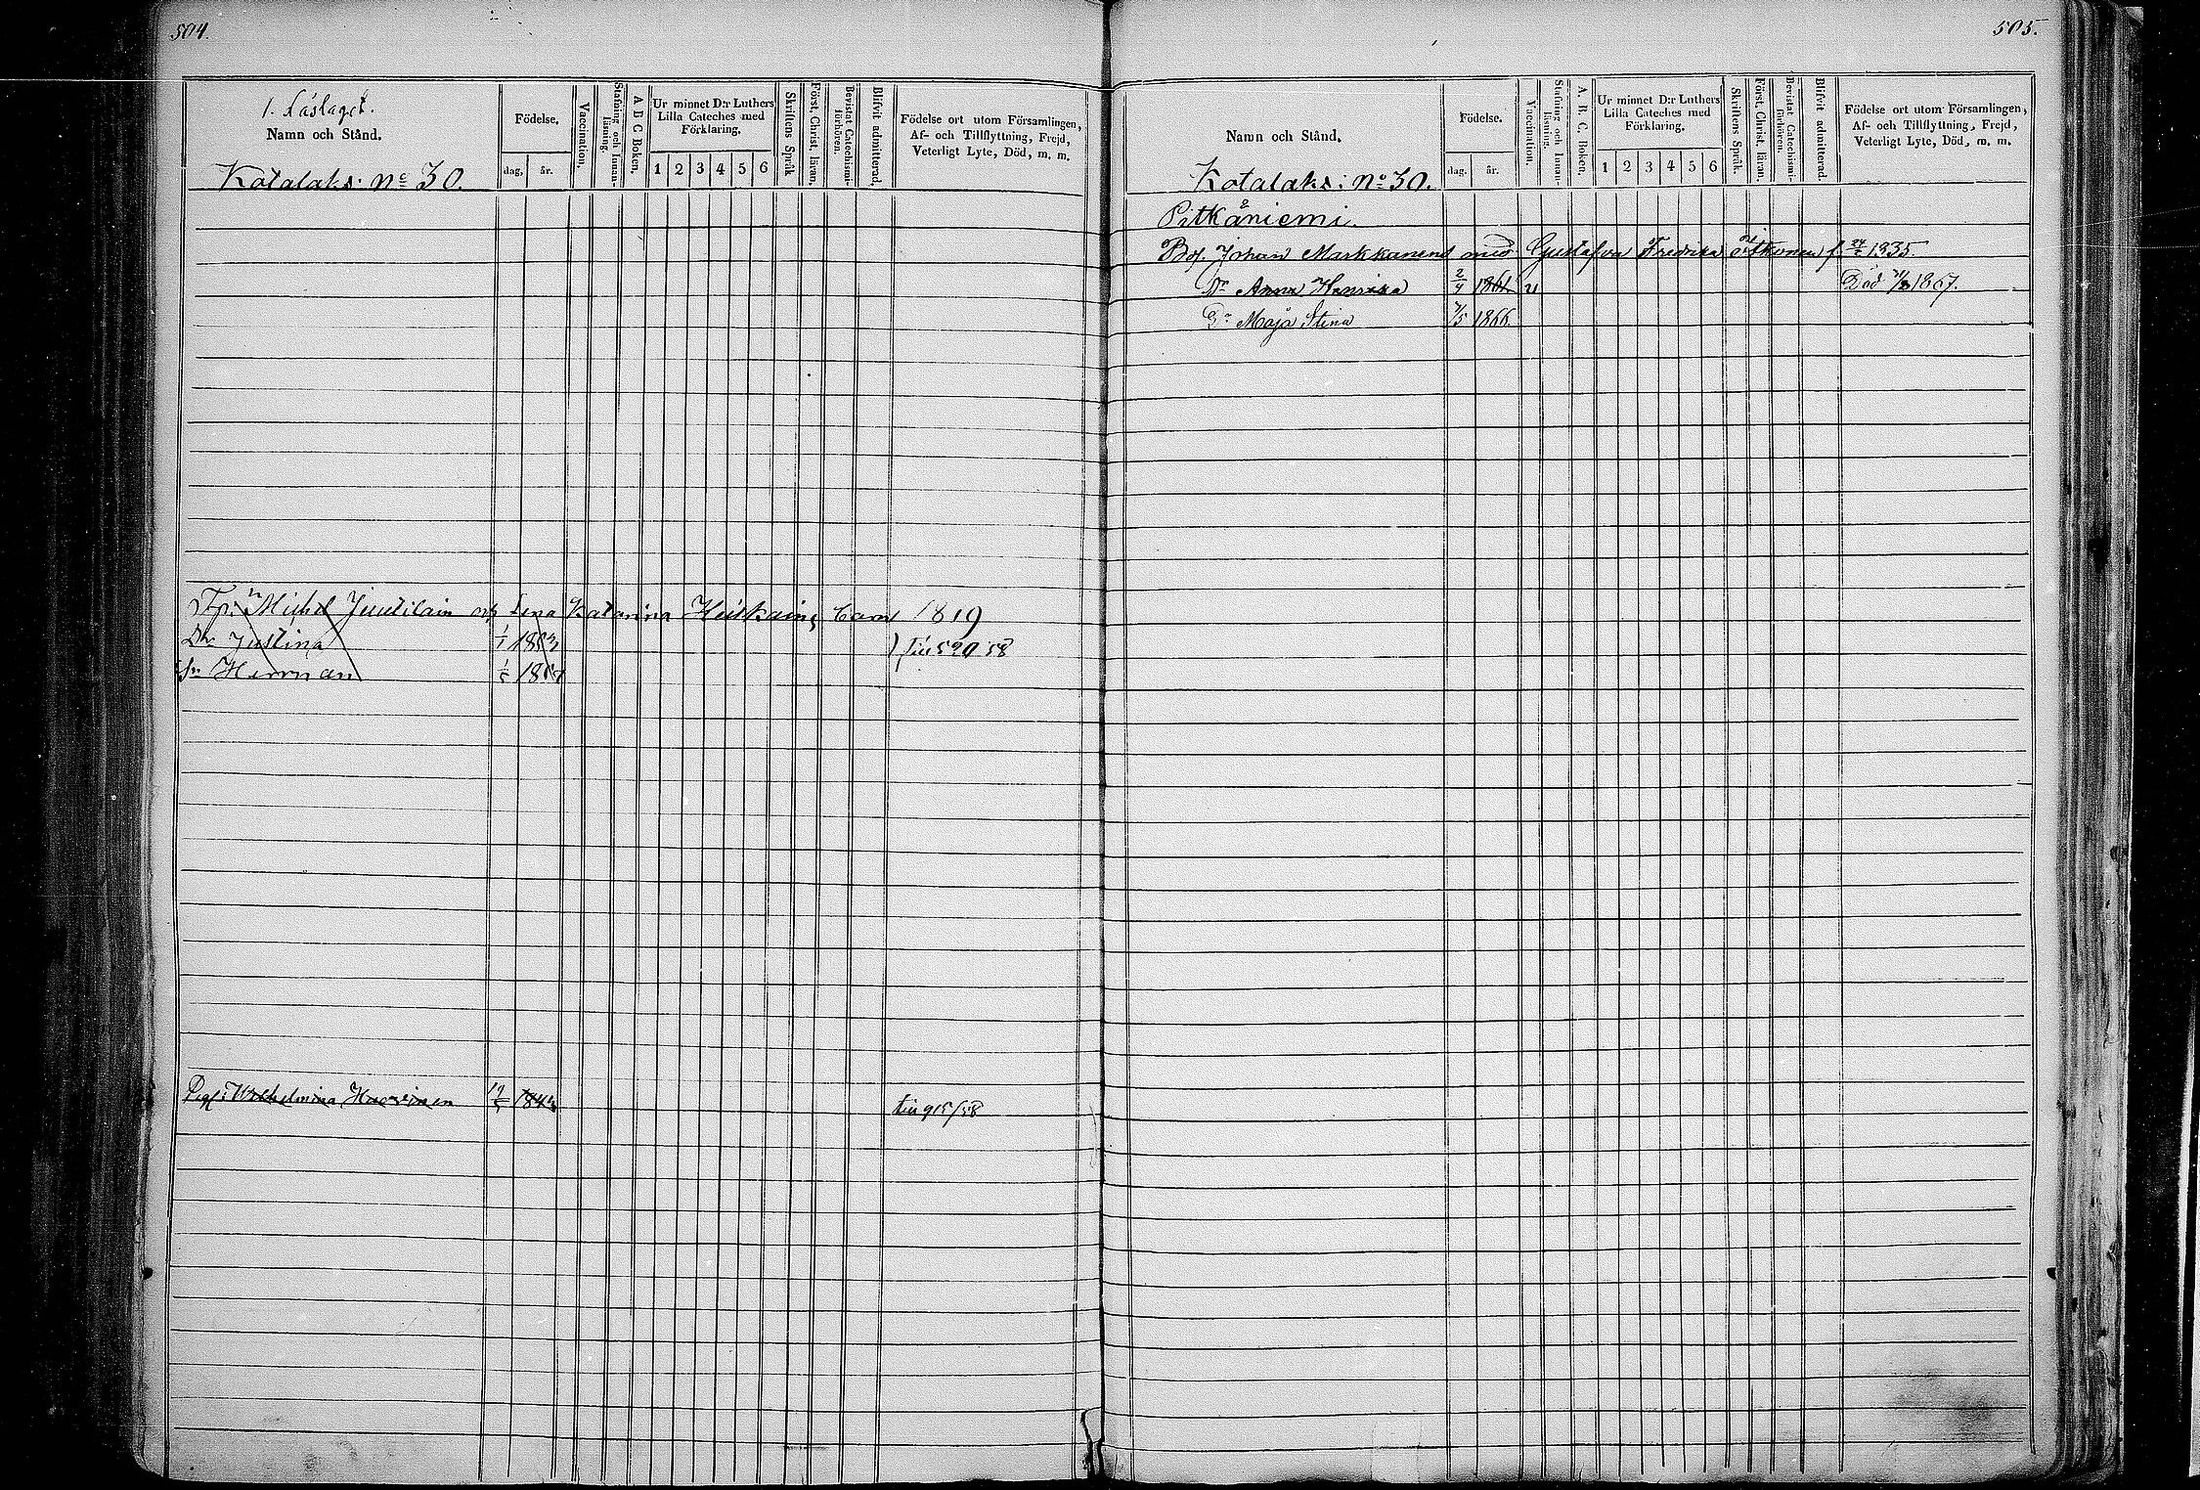 504.
1. Läslaget.
Namn och Stånd.
Kotalaks: No 30.
Födelse.
dag,
år.
Vaccination.
Stafning och Innan-läsning
A B C Boken,
Ur minnet D:r Luthers Lilla Cateches med Förklaring.
1 2 3 4 5 6
Skriftens Språk
Först. Christ. läran,
Bevistat Catechismi-förhören.
Blifvit admitterad,
Födelse ort utom Församlingen,
Af- och Tillflyttning, Frejd,
Veterligt Lyte, Död, m. m.
Michel Juutilain och Lena Katarina Heiskains barn 1819
Dr Justina 1/1
till 590 58
Sn Herman
Pig: Wilhelmina
till 915/58
505.
Namn och Stånd.
Kotalaks: No 30.
Födelse.
dag.
år.
Vaccination.
Stafning och Innan-läsning.
A. B. C. Boken,
Ur minnet D:r Luthers Lilla Cateches med Förklaring.
1 2 3 4 5 6
Skriftens Språk.
Först. Christ. läran.
Bevistat Catechismi-förhören.
Blifvit admitterad.
Födelse ort utom Församlingen,
Af- och Tillflyttning, Frejd,
Veterligt Lyte, Död, m. m.
Pitkäniemi.
Johan Markkanens med Gustafva Fredrika Itkonen f. 1835.
Dr Anna Henrika 2/4 1861 v Död 1867.
Dr Maja Stina 7/5 1866